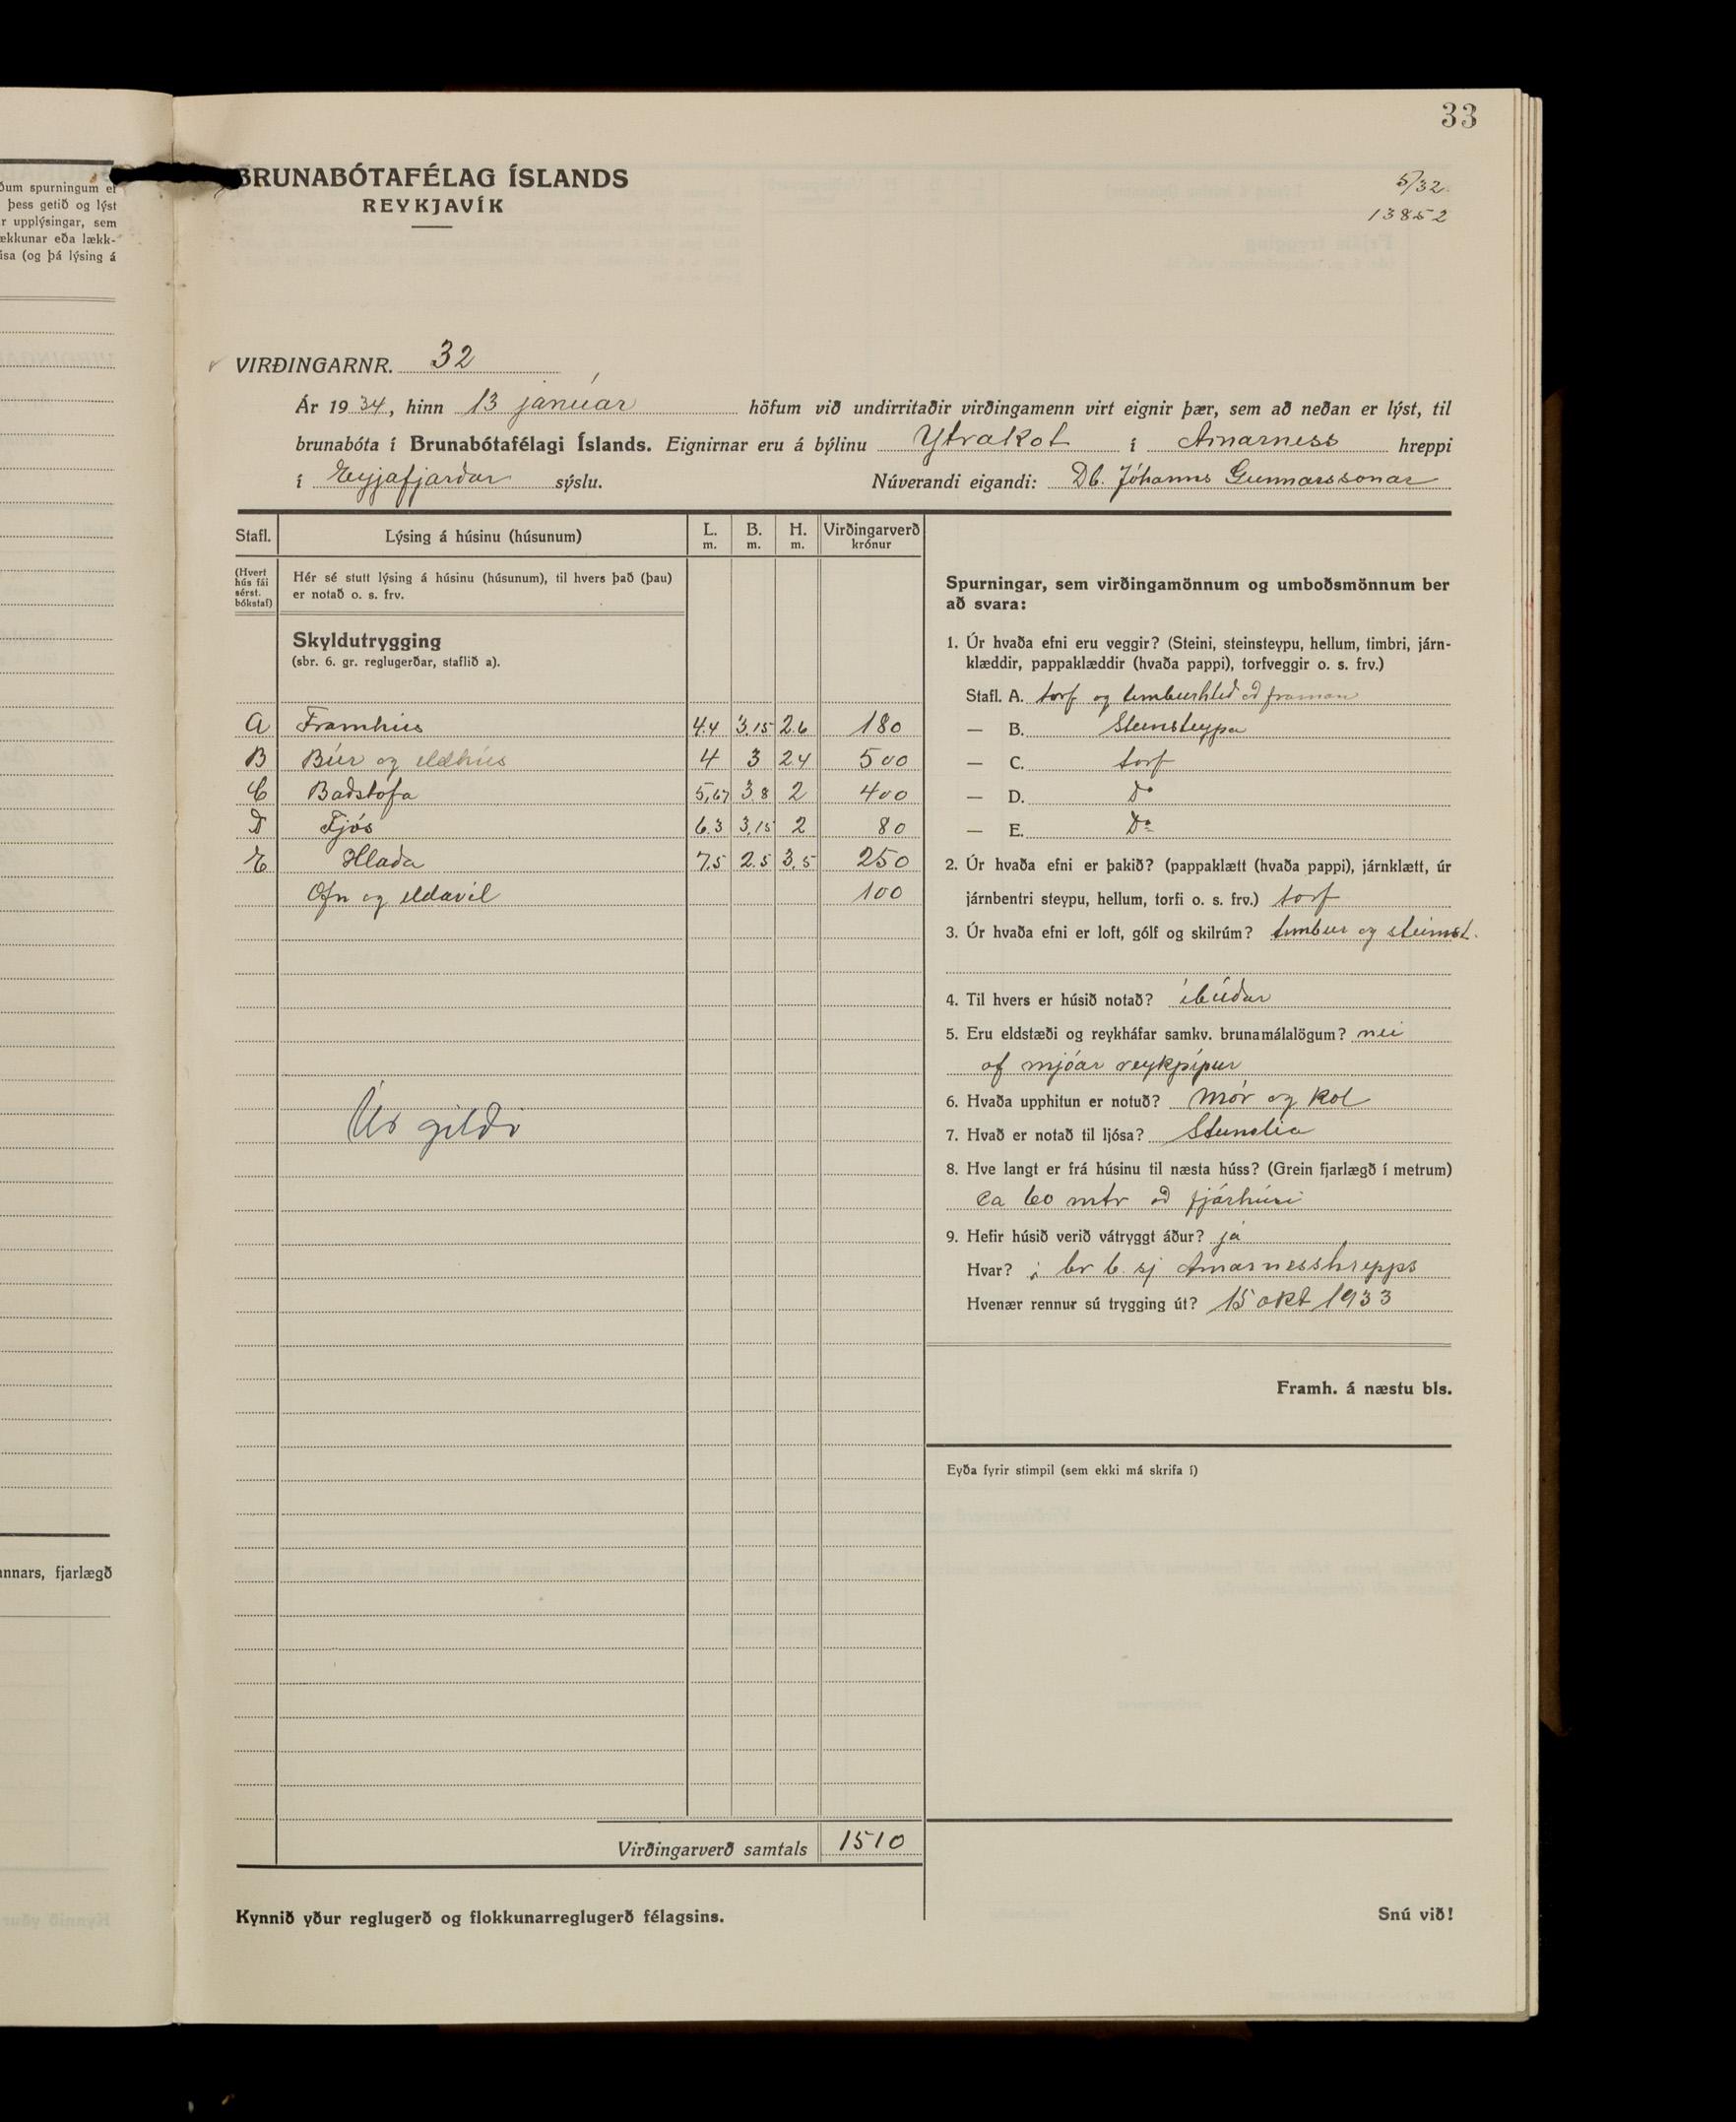 33
ðum spurningum er
þess getið og lýst
r upplýsingar, sem
ækkunar eða lækk-
isa (og þá lýsing á
annars, fjarlægð
BRUNABÓTAFÉLAG ÍSLANDS
REYKJAVÍK
5/32.
13852
VIRÐINGARNR. 32
Ár 1934, hinn 13 janúar höfum við undirritaðir virðingamenn virt eignir þær, sem að neðan er lýst, til
brunabóta í Brunabótafélagi Íslands. Eignirnar eru á býlinu Ytrakot í Arnarness hreppi
í Eyjafjarðar sýslu. Núverandi eigandi: Db. Jóhanns Gunnarssonar
Stafl. Lýsing á húsinu (húsunum) L. m. B. m. H. m. Virðingarverð krónur
(Hvert hús fái sérst. bókstaf)
Hér sé stutt lýsing á húsinu (húsunum), til hvers það (þau)
er notað o. s. frv.
Skyldutrygging
(sbr. 6. gr. reglugerðar, staflið a).
A Framhús 4.4 3,15 2.6 180
B Búr og eldhús 4 3 2.4 500
C Baðstofa 5,67 3.8 2 400
D Fjós 6.3 3,15 2 80
E Hlaða 7.5 2.5 3,5 250
Ofn og eldavél 100
Úr gildi
Virðingarverð samtals 1510
Kynnið yður reglugerð og flokkunarreglugerð félagsins.
Spurningar, sem virðingamönnum og umboðsmönnum ber
að svara:
1. Úr hvaða efni eru veggir? (Steini, steinsteypu, hellum, timbri, járn-
klæddir, pappaklæddir (hvaða pappi), torfveggir o. s. frv.)
Stafl. A. torf og timburhlið að framan
— B. Steinsteypa
— C. torf
— D. Do
— E. Do
2. Úr hvaða efni er þakið? (pappaklætt (hvaða pappi), járnklætt, úr
járnbentri steypu, hellum, torfi o. s. frv.) torf
3. Úr hvaða efni er loft, gólf og skilrúm? timbur og steinst.
4. Til hvers er húsið notað? íbúðar
5. Eru eldstæði og reykháfar samkv. brunamálalögum? nei
of mjóar reykpípur
6. Hvaða upphitun er notuð? Mór og kol
7. Hvað er notað til ljósa?
8. Hve langt er frá húsinu til næsta húss? (Grein fjarlægð í metrum)
ca 60 mtr að fjárhúsi
9. Hefir húsið verið vátryggt áður? já
Hvar? í br b. sj Arnarnesshrepps
Hvenær rennur sú trygging út? 15 okt 1933
Framh. á næstu bls.
Eyða fyrir stimpil (sem ekki má skrifa í)
Snú við!